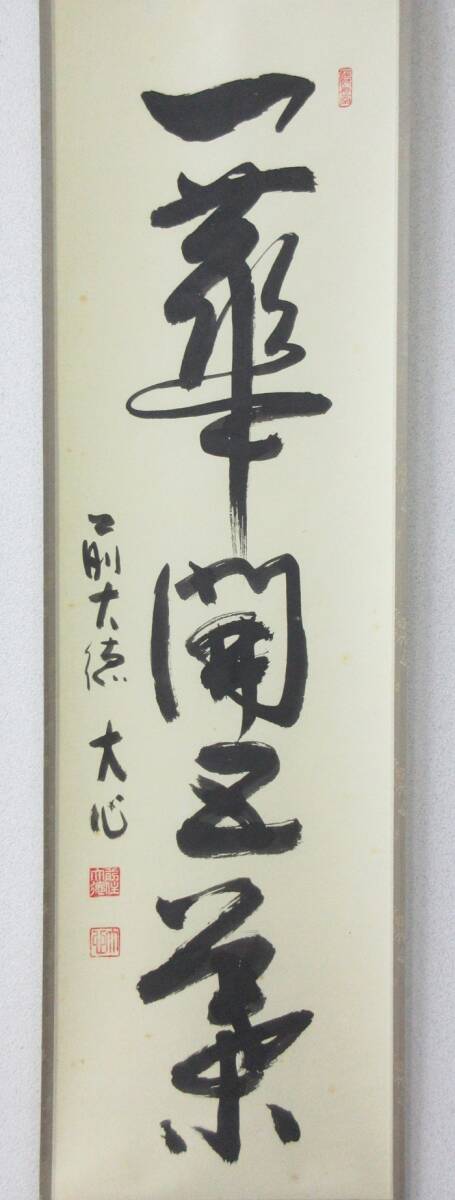 一華開五葉
前大徳 大心